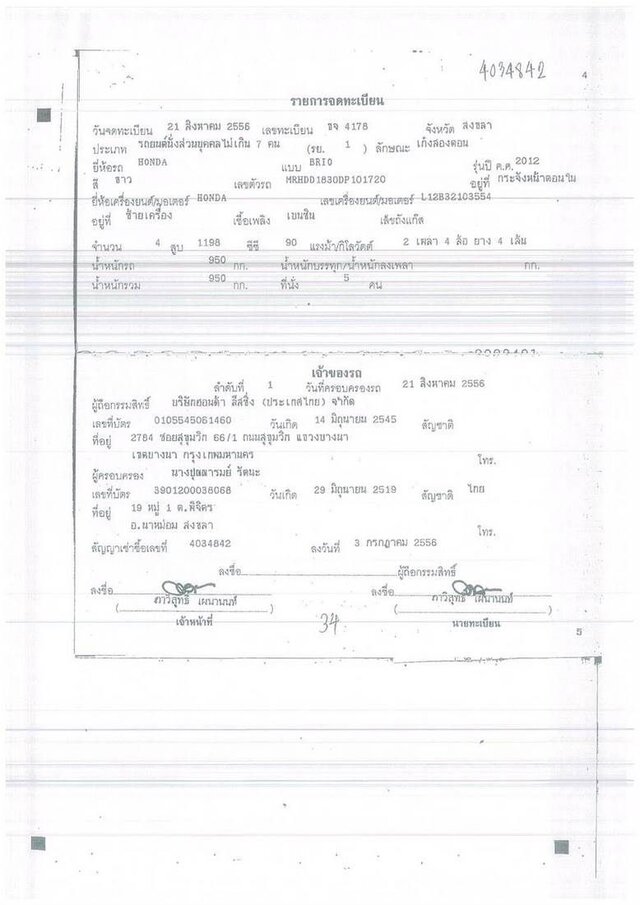 4034842
4
รายการจดทะเบียน
วันจดทะเบียน 21 สิงหาคม 2556 เลขทะเบียน ขจ 4178 จังหวัด สงขลา
ประเภท รถยนต์นั่งส่วนบุคคลไม่เกิน 7 คน (รย. 1 ) ลักษณะ เก๋งสองตอน
ยี่ห้อรถ HONDA แบบ BRIO รุ่นปี ค.ศ. 2012
สี ขาว เลขตัวรถ MRHDD1830DP101720 อยู่ที่ กระจังหน้าตอนใน
ยี่ห้อเครื่องยนต์/มอเตอร์ HONDA เลขเครื่องยนต์/มอเตอร์ L12B32103554
อยู่ที่ ซ้ายเครื่อง เชื้อเพลิง เบนซิน เลขถังแก๊ส
จำนวน 4 สูบ 1198 ซีซี 90 แรงม้า/กิโลวัตต์ 2 เพลา 4 ล้อ ยาง 4 เส้น
น้ำหนักรถ 950 กก. น้ำหนักบรรทุก/น้ำหนักลงเพลา กก.
น้ำหนักรวม 950 กก. ที่นั่ง 5 คน
เจ้าของรถ
ลำดับที่ 1 วันที่ครอบครองรถ 21 สิงหาคม 2556
ผู้ถือกรรมสิทธิ์ บริษัทฮอนด้า ลีสซิ่ง (ประเทศไทย) จำกัด
เลขที่บัตร 0105545061460 วันเกิด 14 มิถุนายน 2545 สัญชาติ
ที่อยู่ 2784 ซอยสุขุมวิท 66/1 ถนนสุขุมวิท แขวงบางนา
เขตบางนา กรุงเทพมหานคร โทร.
ผู้ครอบครอง รัตนะ
เลขที่บัตร 3901200038068 วันเกิด 29 มิถุนายน 2519 สัญชาติ ไทย
ที่อยู่ 19 หมู่ 1 ต.พิจิตร
อ.นาหม่อม สงขลา โทร.
สัญญาเช่าซื้อเลขที่ 4034842 ลงวันที่ 3 กรกฎาคม 2556
ลงชื่อ ผู้ถือกรรมสิทธิ์
ลงชื่อ ลงชื่อ
( ภาวิสุทธิ์ เผนานนท์ ) ( ภาวิสุทธิ์ เผนานนท์ )
เจ้าหน้าที่ 34 นายทะเบียน
5